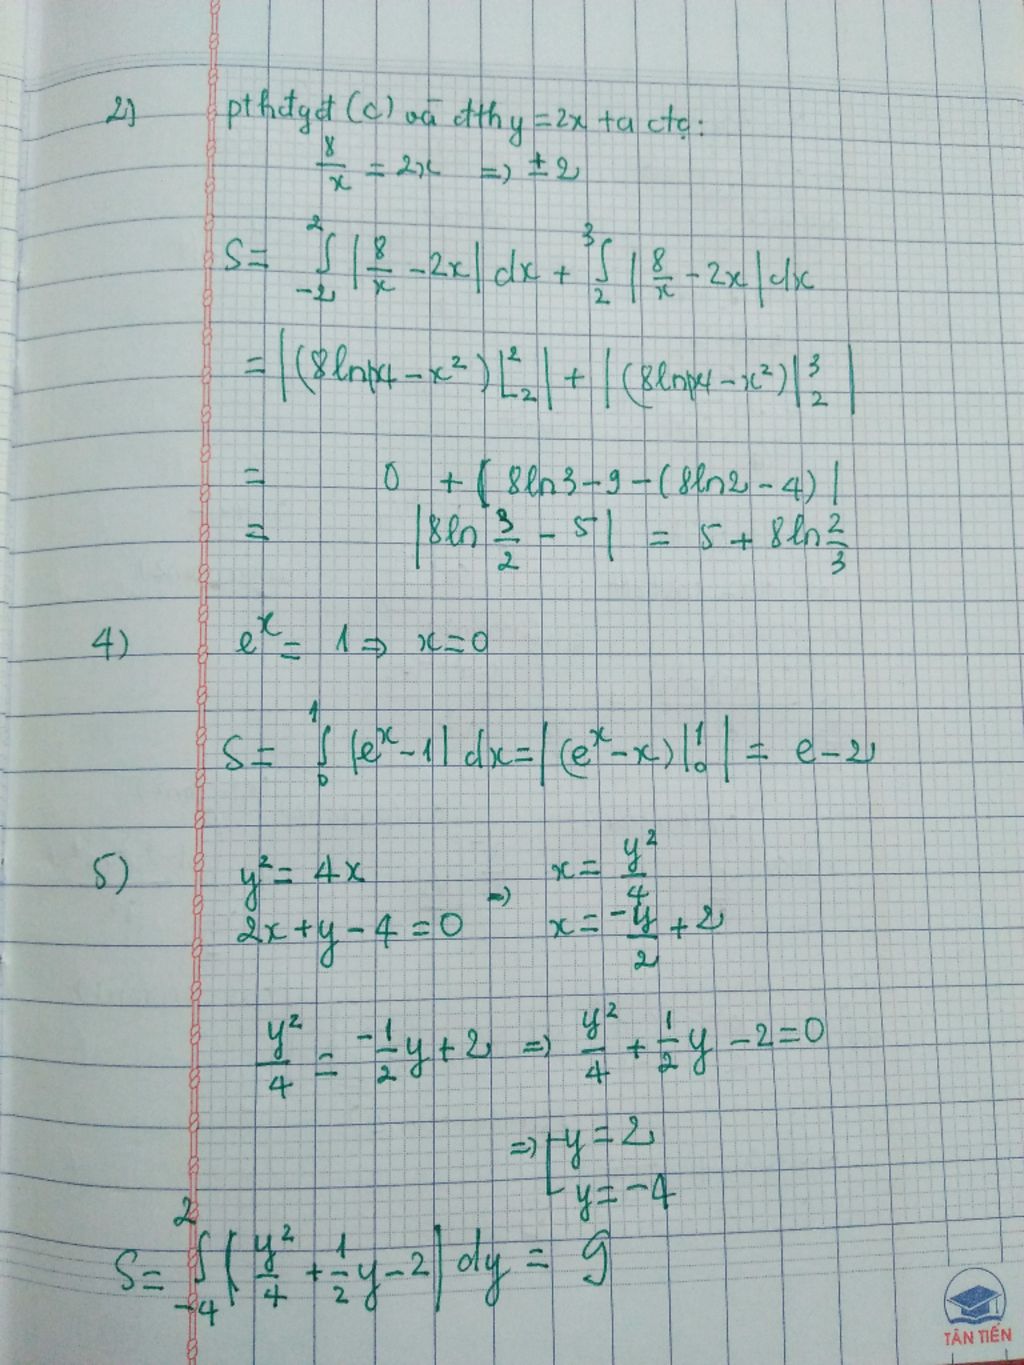 2) pthđgđ (C) và đth y = 2x + a ctọ:
8/x = 2x => ± 2
S = ∫_{-2}^{2} |8/x - 2x| dx + ∫_{2}^{3} |8/x - 2x| dx
= |(8ln|x| - x²)|_{-2}^{2}| + |(8ln|x| - x²)|_{2}^{3}|
= 0 + | 8ln3 - 9 - (8ln2 - 4) |
= |8ln 3/2 - 5| = 5 + 8ln 2/3
4) e^x = 1 => x = 0
S = ∫_{0}^{1} |e^x - 1| dx = |(e^x - x)|_{0}^{1}| = e - 2
5) y² = 4x => x = y²/4
2x + y - 4 = 0 x = -y/2 + 2
y²/4 = -1/2 y + 2 => y²/4 + 1/2 y - 2 = 0
=> [ y = 2
y = -4
S = ∫_{-4}^{2} | y²/4 + 1/2 y - 2 | dy = 9
TÂN TIẾN